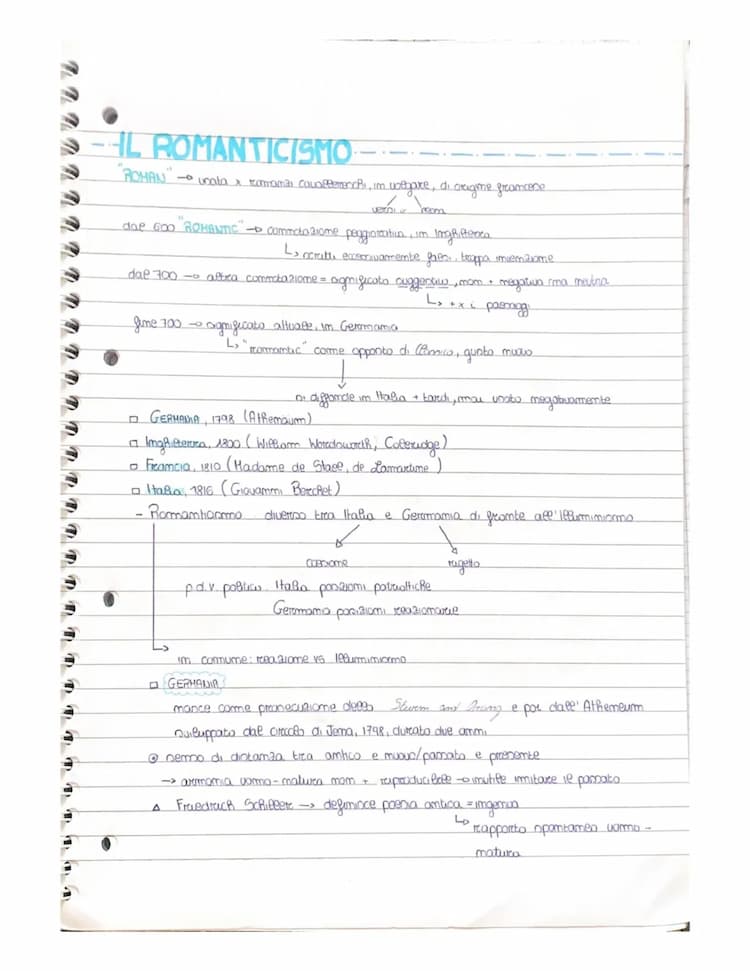 IL ROMANTICISMO
"ROMAN" → usata x romanzi cavallereschi, in volgare, di origine francese
versi o non
dal 600 "ROMANTIC" → connotazione peggiorativa, in Inghilterra
↳ scritti eccessivamente falsi, troppa invenzione
dal 700 → altra connotazione = significato suggestivo, non + negativa ma neutra
↳ + x i paesaggi
fine 700 → significato attuale, in Germania
↳ "romantic" come opposto di classico, gusto nuovo
si diffonde in Italia + tardi, ma usato negativamente
□ GERMANIA, 1798 (Athenäum)
□ Inghilterra, 1800 (William Wordsworth, Coleridge)
□ Francia, 1810 (Madame de Stael, de Lamartine)
□ Italia, 1816 (Giovanni Berchet)
- Romanticismo diverso tra Italia e Germania di fronte all'Illuminismo
coesione rigetto
p.d.v. politico Italia posizioni patriottiche
Germania posizioni reazionarie
↳ in comune: reazione vs Illuminismo
□ GERMANIA
nasce come prosecuzione dello Sturm und Drang e poi dall'Athenäum
sviluppato dal circolo di Jena, 1798, durato due anni
senso di distanza tra antico e nuovo/passato e presente
→ armonia uomo-natura non + riproducibile → inutile imitare il passato
△ Friedrich Schiller → definisce poesia antica = ingenua
↳ rapporto spontaneo uomo -
natura